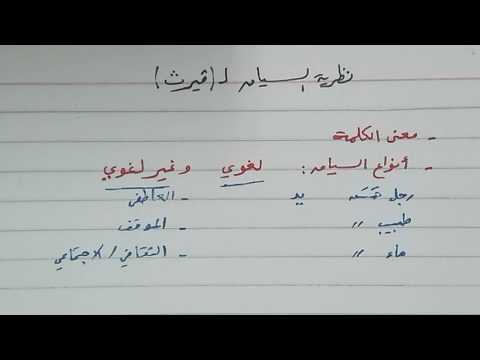 نظرية السياق لـ (فيرث)
- معنى الكلمة
- أنواع السياق: لغوي وغير لغوي
رجل حَسَن يد - العاطفي
طبيب " - الموقف
ماء " - الثقافي / الاجتماعي